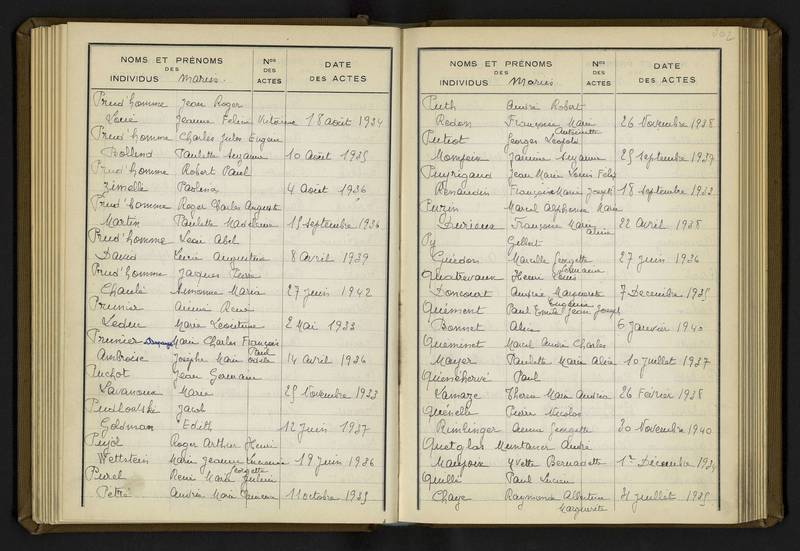 NOMS ET PRÉNOMS
DES
INDIVIDUS Mariés.
Nos
DES
ACTES
DATE
DES ACTES
Prud'homme Jean Roger
Jeanne Félicie Victorine 18 août 1934
Prud'homme Charles Jules Eugène
Paulette Suzanne 10 Août 1935
Prud'homme Robert Paul
Paolina 4 Août 1936
Prud'homme Roger Charles Auguste
Martin Paulette Madeleine 15 septembre 1936
Prud'homme Léon Abel
David Lucie Augustine 8 avril 1939
Prud'homme Jacques Pierre
Simonne Maria 27 juin 1942
Prunier Aimé René
Leduc Marie Léontine 2 Mai 1933
Prunier Marie Charles François
Paul
Ambroise Josèphe Marie Odile 14 avril 1936
Puchot Jean Germain
Lavanoux Marie 25 Novembre 1933
Pudlowski Jacob
Goldman Edith 12 juin 1937
Pujol Roger Arthur Henri
Wettstein Marie Jeanne Lucienne 19 juin 1936
Georgette
Purel René Marie Julien
Pétré Andrée Marie 11 octobre 1935
302
NOMS ET PRÉNOMS
DES
INDIVIDUS Mariés
Nos
DES
ACTES
DATE
DES ACTES
Puth André Robert
Redon Françoise Marie 26 Novembre 1938
Antoinette
Putiot Georges Léopold
Janine Suzanne 25 septembre 1937
Puyrigaud Jean Marie Louis Félix
Renaudin Françoise Marie Joseph 18 septembre 1933
Marcel Alphonse Marie
Durioux Françoise Marie 22 Avril 1938
Aline
Py Gilbert
Guédon Marcelle Georgette 27 juin 1936
Germaine
Quatrevaux Henri Louis
Doncourt Andrée Marguerite 7 Décembre 1935
Eugénie
Quément Paul Emile Jean Joseph
Bonnet Alice 6 janvier 1940
Quéminet Marcel André Charles
Mayer Paulette Marie Alice 10 juillet 1937
Quénéhervé Paul
Lamaze Thérèse Marie Andréa 26 Février 1938
Quénelle Pierre Nicolas
Rimlinger Anna Georgette 30 Novembre 1940
Quetglas Muntaner André
Yvette Bernadette 1er Décembre 1934
Quilli Paul Lucien
Chaye Raymonde Albertine 31 juillet 1935
Marguerite